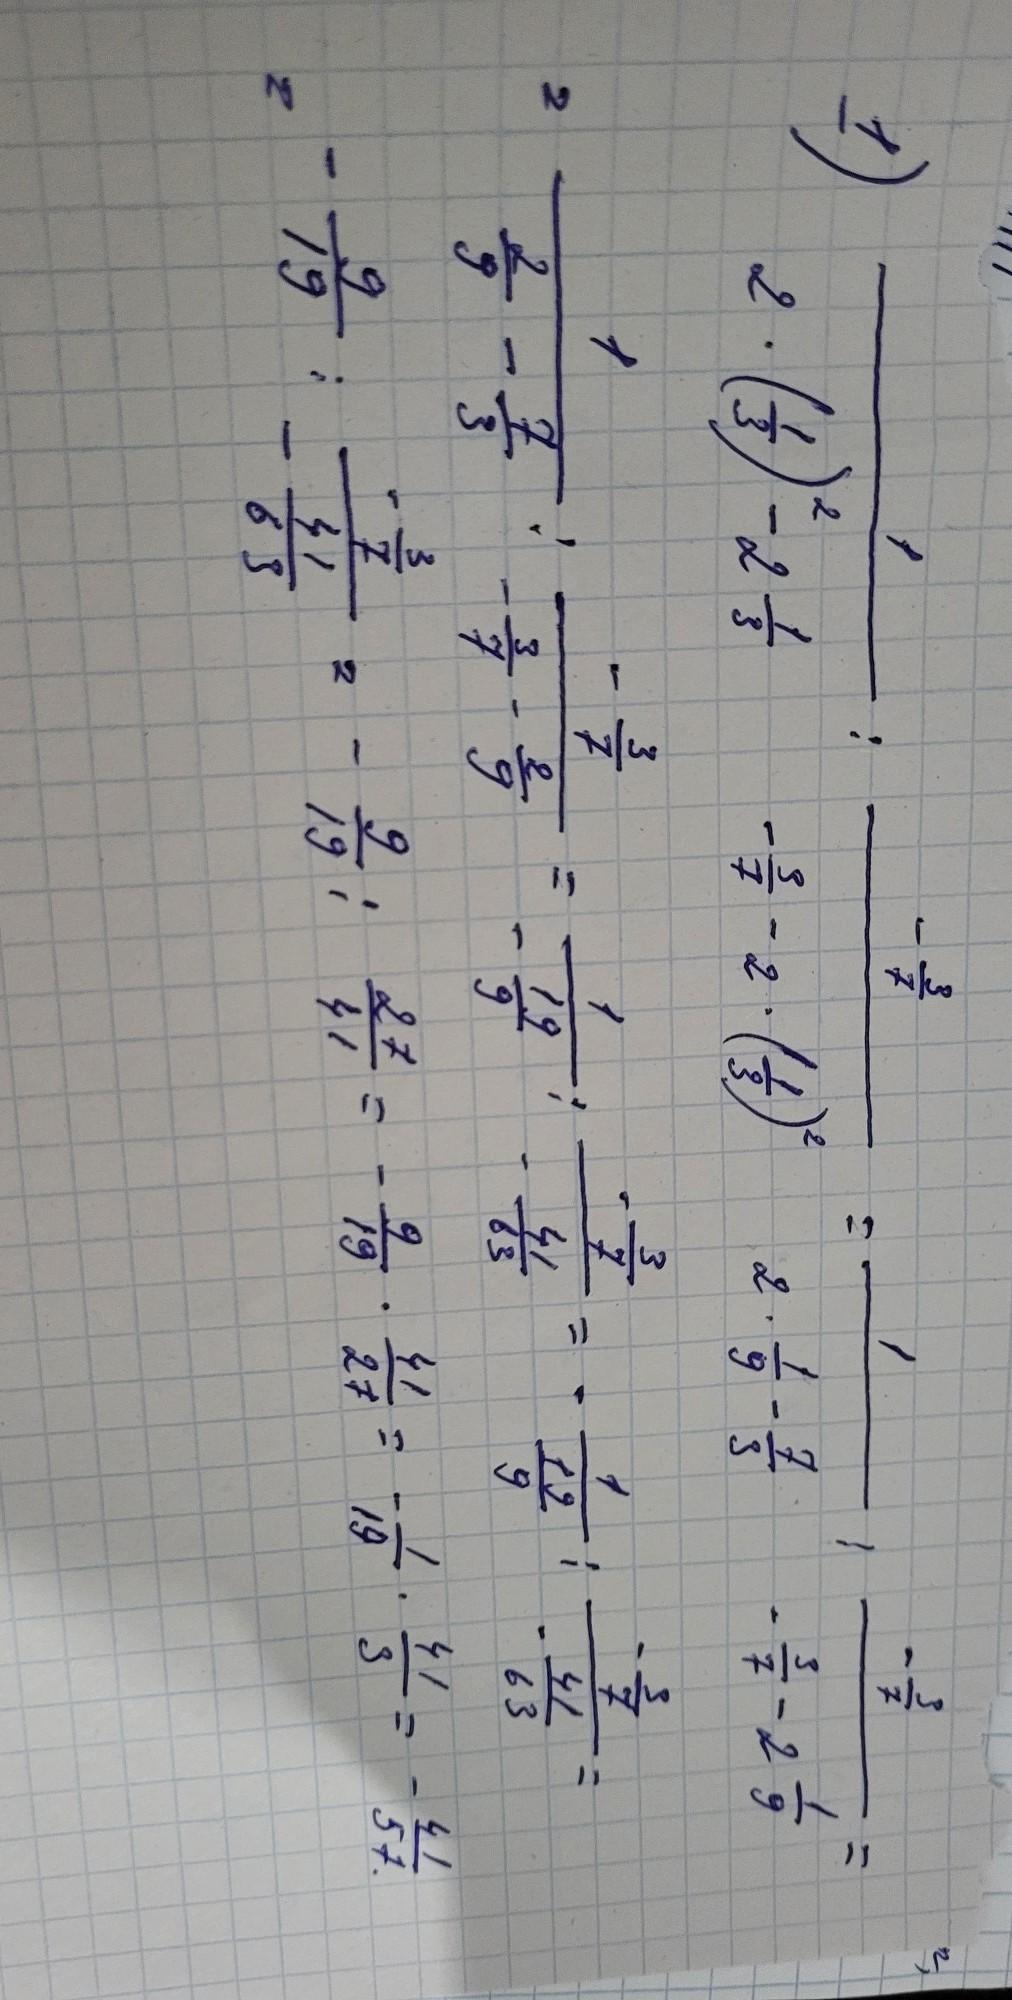 1) 1/(2 · (1/3)² - 2 1/3) : (-3/7)/(-3/7 - 2 · (1/3)²) = 1/(2 · 1/9 - 7/3) : (-3/7)/(-3/7 - 2 1/9) =
= 1/(2/9 - 7/3) : (-3/7)/(-3/7 - 2/9) = 1/(-19/9) : (-3/7)/(-41/63) = - 1/(19/9) : (-3/7)/(-41/63) =
= - 9/19 : (-3/7)/(-41/63) = - 9/19 : 27/41 = - 9/19 · 41/27 = - 1/19 · 41/3 = - 41/57.